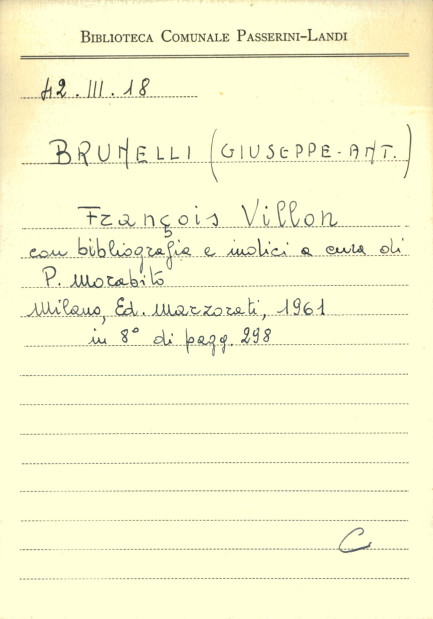 BIBLIOTECA COMUNALE PASSERINI-LANDI
42.III.18
BRUNELLI (GIUSEPPE-ANT.)
François Villon
con bibliografia e indici a cura di
P. Morabito
Milano, Ed. Marzorati, 1961
in 8° di pagg. 298
C